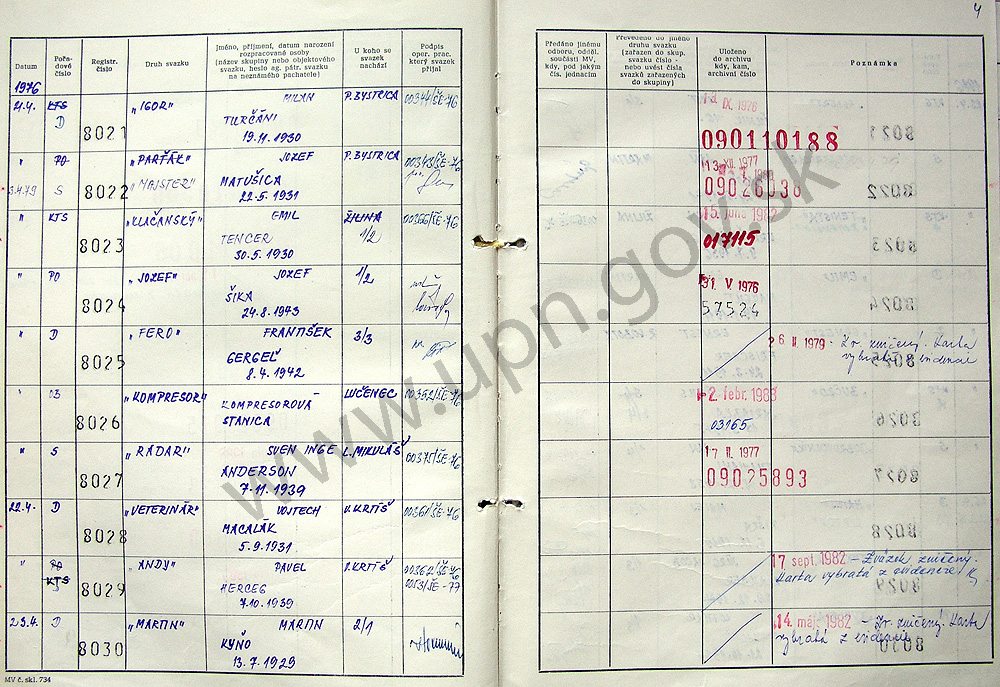 4
Datum
Pořadové číslo
Registr. číslo
Druh svazku
Jméno, příjmení, datum narození
rozpracované osoby
(název skupiny nebo objektového
svazku, heslo ag. pátr. svazku
na neznámého pachatele)
U koho se
svazek
nachází
Podpis
oper. prac.
který svazek
přijal
Předáno jinému
odboru, odděl.
součásti MV,
kdy, pod jakým
čís. jednacím
Převedeno do jiného
druhu svazku
(zařazen do skup.
svazku číslo -
nebo uvést čísla
svazků zařazených
do skupiny)
Uloženo
do archivu
kdy, kam,
archivní číslo
Poznámka
1976
21.4. KTS D 8021 „IGOR" MILAN P. BYSTRICA 00344/ŠE-76 IX. 1976
TURČÁNI
19.11.1930 090110188
" PO 8022 „PARŤÁK" JOZEF P. BYSTRICA 00343/ŠE-76 13. XII. 1977
3.4.79 S „MAJSTER" MATUŠICA
22.5.1931 09026038
" KTS 8023 „KLAČANSKÝ" EMIL ŽILINA 1/2 00366/ŠE-76
TENCER
30.5.1930 017115
" PO 8024 „JOZEF" JOZEF 1/2 31. V. 1976
ŠÍKA
24.8.1943 57524
" D 8025 „FERO" FRANTIŠEK 3/3 26. II. 1979 - Zv. zničený. Karta
GERGEĽ vybratá z evidencie
8.4.1942
" OB 8026 „KOMPRESOR" KOMPRESOROVÁ LUČENEC 00352/ŠE-76 2. febr. 1983
STANICA 03165
" S 8027 „RADAR" SVEN INGE L. MIKULÁŠ 00375/ŠE-76 17. II. 1977
ANDERSON
7.11.1939 09025893
22.4. D 8028 „VETERINÁR" VOJTECH V. KRTÍŠ 00361/ŠE-76
MACALÁK
5.9.1931
" PO KTS S 8029 „ANDY" PAVEL V. KRTÍŠ 00362/ŠE-76 17. sept. 1982 - Zväzok zničený.
HERCEG 0053/ŠE-77 Karta vybratá z evidencie
7.10.1939
23.4. D 8030 „MARTIN" MARTIN 2/1 14. máj 1982 - Zv. zničený. Karta
KYŇO vybratá z evidencie
13.7.1929
MV č. skl. 734
www.upn.gov.sk